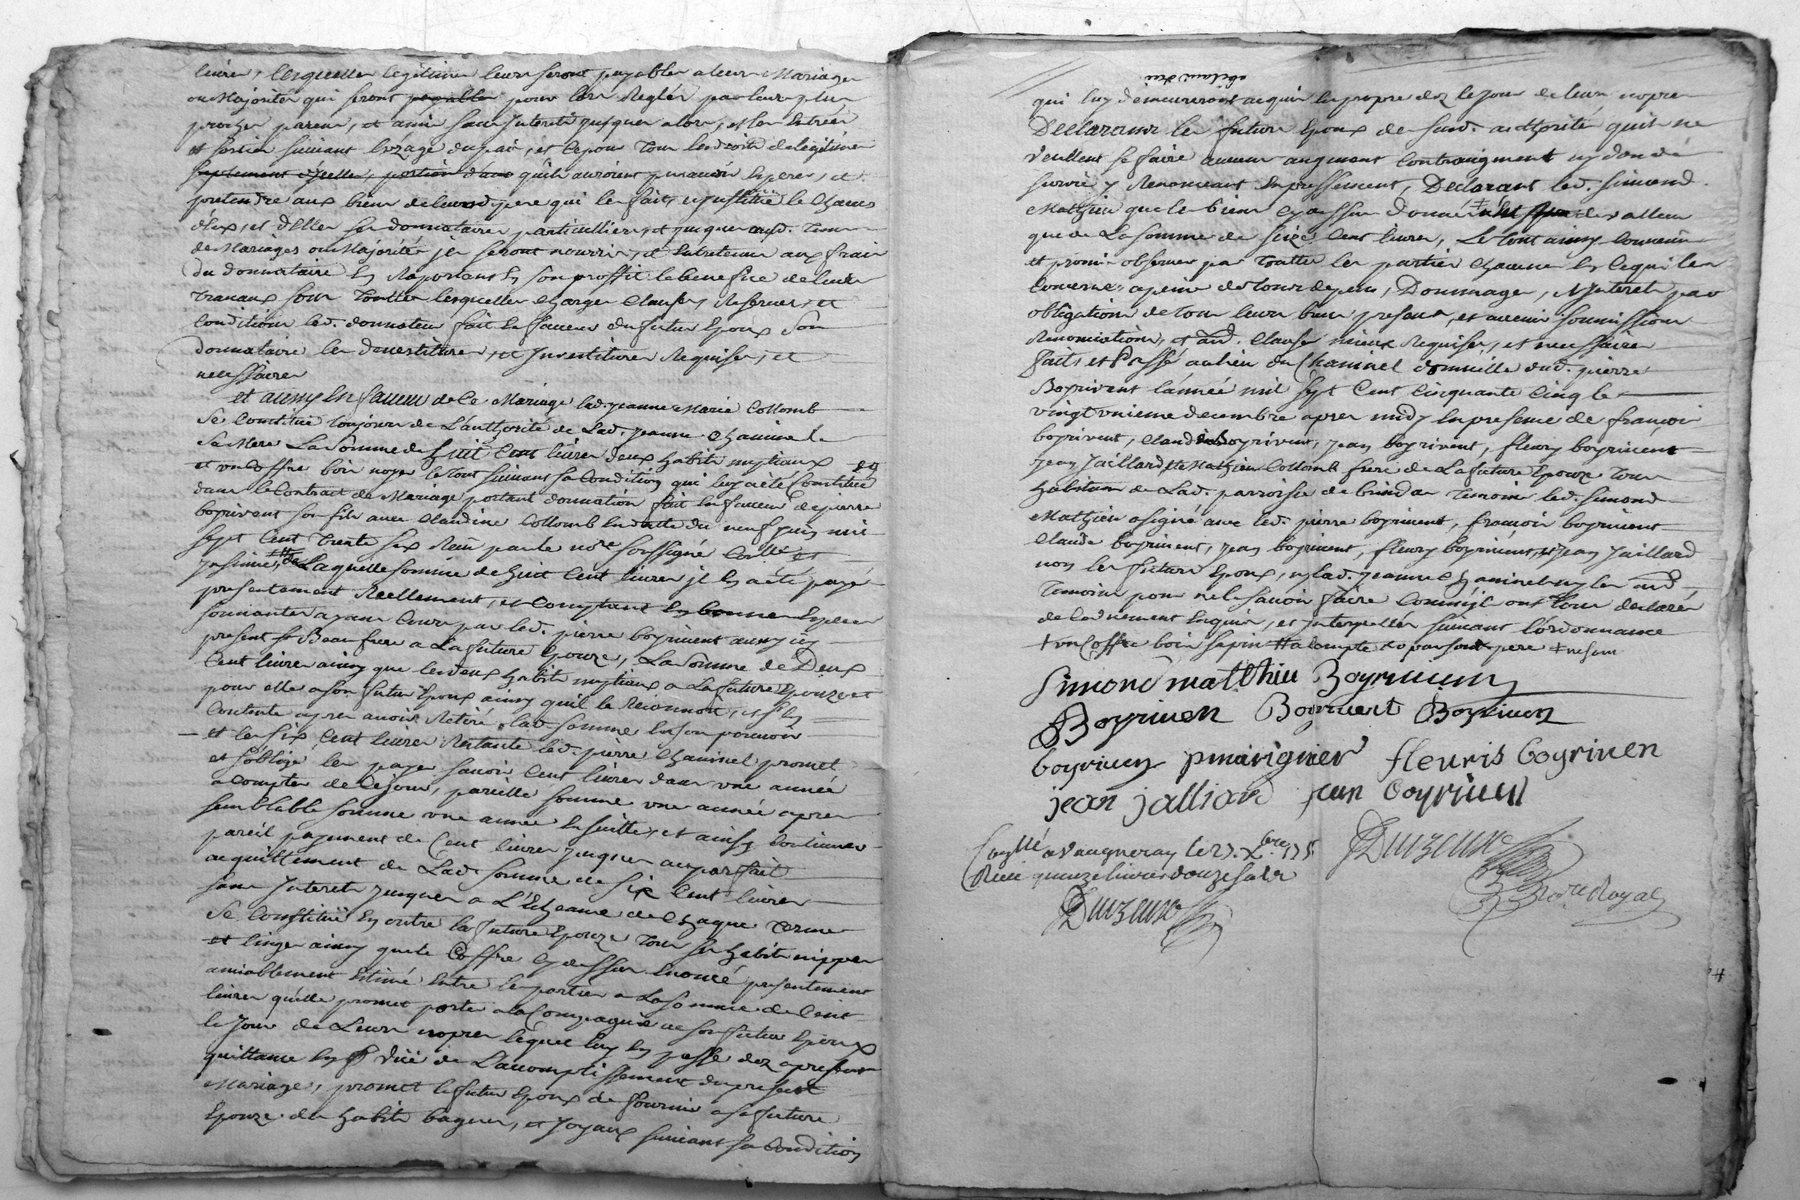 livres, lesquelles legitimes leurs seront payables a leurs Mariages
ou Majorités qui seront payables pour lors Reglés par leurs plus
proches parens, et ainsi sans Interets jusques alors, et les Entrées
et sorties suivant l'uzage du pais, et ce pour Tous les droits de légitime
suplement d'icelle, portion d'aus qu'ils auroient pu avoir esperer, et
pretendre aux biens de leurd. pere qui les fait, institüe le chacun
d'eux, et d'Elles ses donnataires particulliers, et jusques aud. Tems
de Mariages ou Majorités je seront nourris, et Entretenus aux frais
du donnataire En Raportans En son proffit le benefice de leurs
Travaux sous Touttes lesquelles charges Clauses, Reserves, et
Conditions led. donnateur fait En faveur du futur Epoux son
donnataire les devestitures, et Investitures Requises, et
necessaires
et aussy En faveur de Ce Mariage lad. jeanne Marie Collomb
Se Constitüe toujours de L'authorité de Lad. jeanne Chaminel
sa Mere La somme de huit Cent livres deux habits nuptiaux
et un coffre bois noyer le tout suivant sa Condition qui luy a eté Constitué
dans le Contract de Mariage portant donnation fait En faveur de pierre
boyrivent son fils avec Claudine Collomb En datte du neuf juin mil
sept Cent Trente six Reçu par le nore soussigné Collé et
Insinué, Laquelle somme de huit Cent livres je Ly a eté payé
presentement Réellement, et Comptant En bonnes Especes
sonnantes ayans Cours par led. pierre boyrivent aussy icy
present Beau frere a La future Epouze, La somme de Deux
Cent livres ainsy que les deux habits nuptiaux a La future Epouze et
pour elle a son futur Epoux ainsy quil le Reconnoit, et s'En
Contente apres avoir Retiré lad. somme En son pouvoir
et les six Cent livres Restante led. pierre Chaminel promet
et s'oblige les payer savoir Cent livres dans une année
a Compter de Ce jour, pareille somme une année apres
semblable somme une année En suitte, et ainsy Continuer
pareil payement de Cent livres jusques au parfait
acquittement de Lad. somme de six Cent livres
sans Interets jusques a L'Echeance de chaque Terme
Se Constitüe En outre la future Epouze Tous ses habits nippes
et linges ainsy que le Coffre Cy dessus Enoncé presentement
amiablement Estimé Entre les parties a La Somme de Cent
livres qu'elle promet porter a la Compagnie de son futur Epoux
le jour de Leurs nopces lequel luy En passe dez a present
quittance En vüe de L'accomplissement du present
Mariage, promet le futur Epoux de fournir a sa future
Epouze des habits bagues, et Joyaux suivant sa Condition
qui luy demeureront acquis En propre dez le jour de leurs nopces
Declarans les futurs Epoux de Susd. authorité quils ne
Veullent se faire aucun augment Contraugment ny don de
survie y Renonceant Expressement, Declarant led. Simond
Mathieu que les biens Cy dessus donnés de valleur
que de La somme de seize Cent livres, Le tout ainsy Convenu
et promis observer par Touttes les parties chacune En Ce qui les
Concerne, a peine de tous depens, Dommages, Interets par
obligation de tous leurs biens presens, et avenir soumissions
Renonciations, et aud. Clauses mieux Requises, et necessaires
faits et Passé au lieu du Chaminel domicille dud. pierre
Boyrivent l'année mil sept Cent Cinquante Cinq le
vingt unieme decembre apres midy En presence de francois
boyrivent, Claude Boyrivent, jean boyrivent, fleury boyrivent
jean Jaillard et Mathieu Collomb frere de La future Epouze Tous
habitans de Lad. parroisse de brindas Temoins led. Simond
Mathieu a signé avec led. pierre boyrivent, francois boyrivent
Claude boyrivent, jean boyrivent, fleury boyrivent, et jean Jaillard
non les futurs Epoux, ny lad. jeanne Chaminel ny les aud.
Temoins pour ne le savoir faire Comm'ils ont Tous declarés
de Ce duement Enquis, et Interpellés suivant l'ordonnance
+ un Coffre bois sapin # a Compte par son pere ‡ ne sont
Simond matthieu Boyrivent
Boyriven Boyrivent Boyriven
boyriven pmarignier fleuris boyriven
jean jalliard jean boyrivent
Conllé a Vaugneray le 27 Xbre 1755
Reçu quinze livres douze sols
Duizeux
Duizeux
Nore Royal